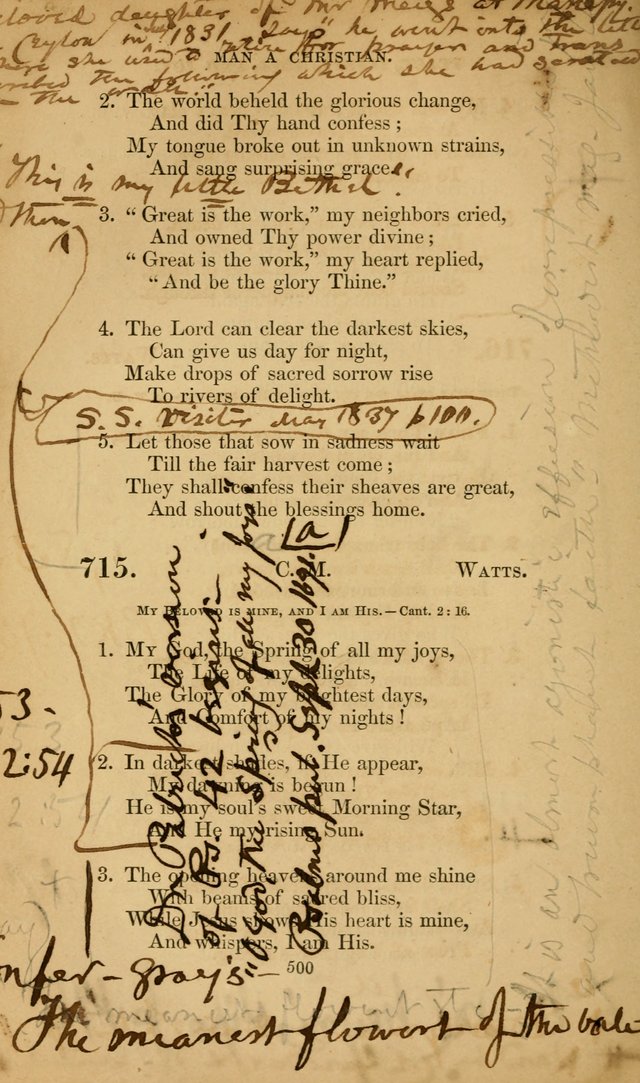 beloved daughter of Mr Meigs at Manepy,
Ceylon in 1831 says he went into the little
where she used to retire for prayer and trans
cribed the following which she had
on the wall"
MAN A CHRISTIAN.
2. The world beheld the glorious change,
And did Thy hand confess ;
My tongue broke out in unknown strains,
And sang surprising grace.
This is my little Bethel."
3. “ Great is the work,” my neighbors cried,
And owned Thy power divine ;
“ Great is the work,” my heart replied,
“ And be the glory Thine.”
4. The Lord can clear the darkest skies,
Can give us day for night,
Make drops of sacred sorrow rise
To rivers of delight.
S. S. Visiter May 1837 p 100.
5. Let those that sow in sadness wait
Till the fair harvest come ;
They shall confess their sheaves are great,
And shout the blessings home.
(a)
715. C. M. WATTS.
MY BELOVED IS MINE, AND I AM HIS.—Cant. 2 : 16.
1. MY God, the Spring of all my joys,
The Life of my delights,
The Glory of my brightest days,
And Comfort of my nights !
53-
2:54
2. In darkest shades, if He appear,
My dawning is begun !
He is my soul's sweet Morning Star,
And He my rising Sun.
3. The opening heavens around me shine
With beams of sacred bliss,
While Jesus shows His heart is mine,
And whispers, I am His.
500
Dr Patrick's version
of Ps. 42 begins—
"O God the Spring of all my joys"
pub. Sept 30 1691.
It is an almost agonistic effusion of irrepressible
and triumphant faith" Methodist Mag. Ja
- gray's -
The meanest floweret of the vale